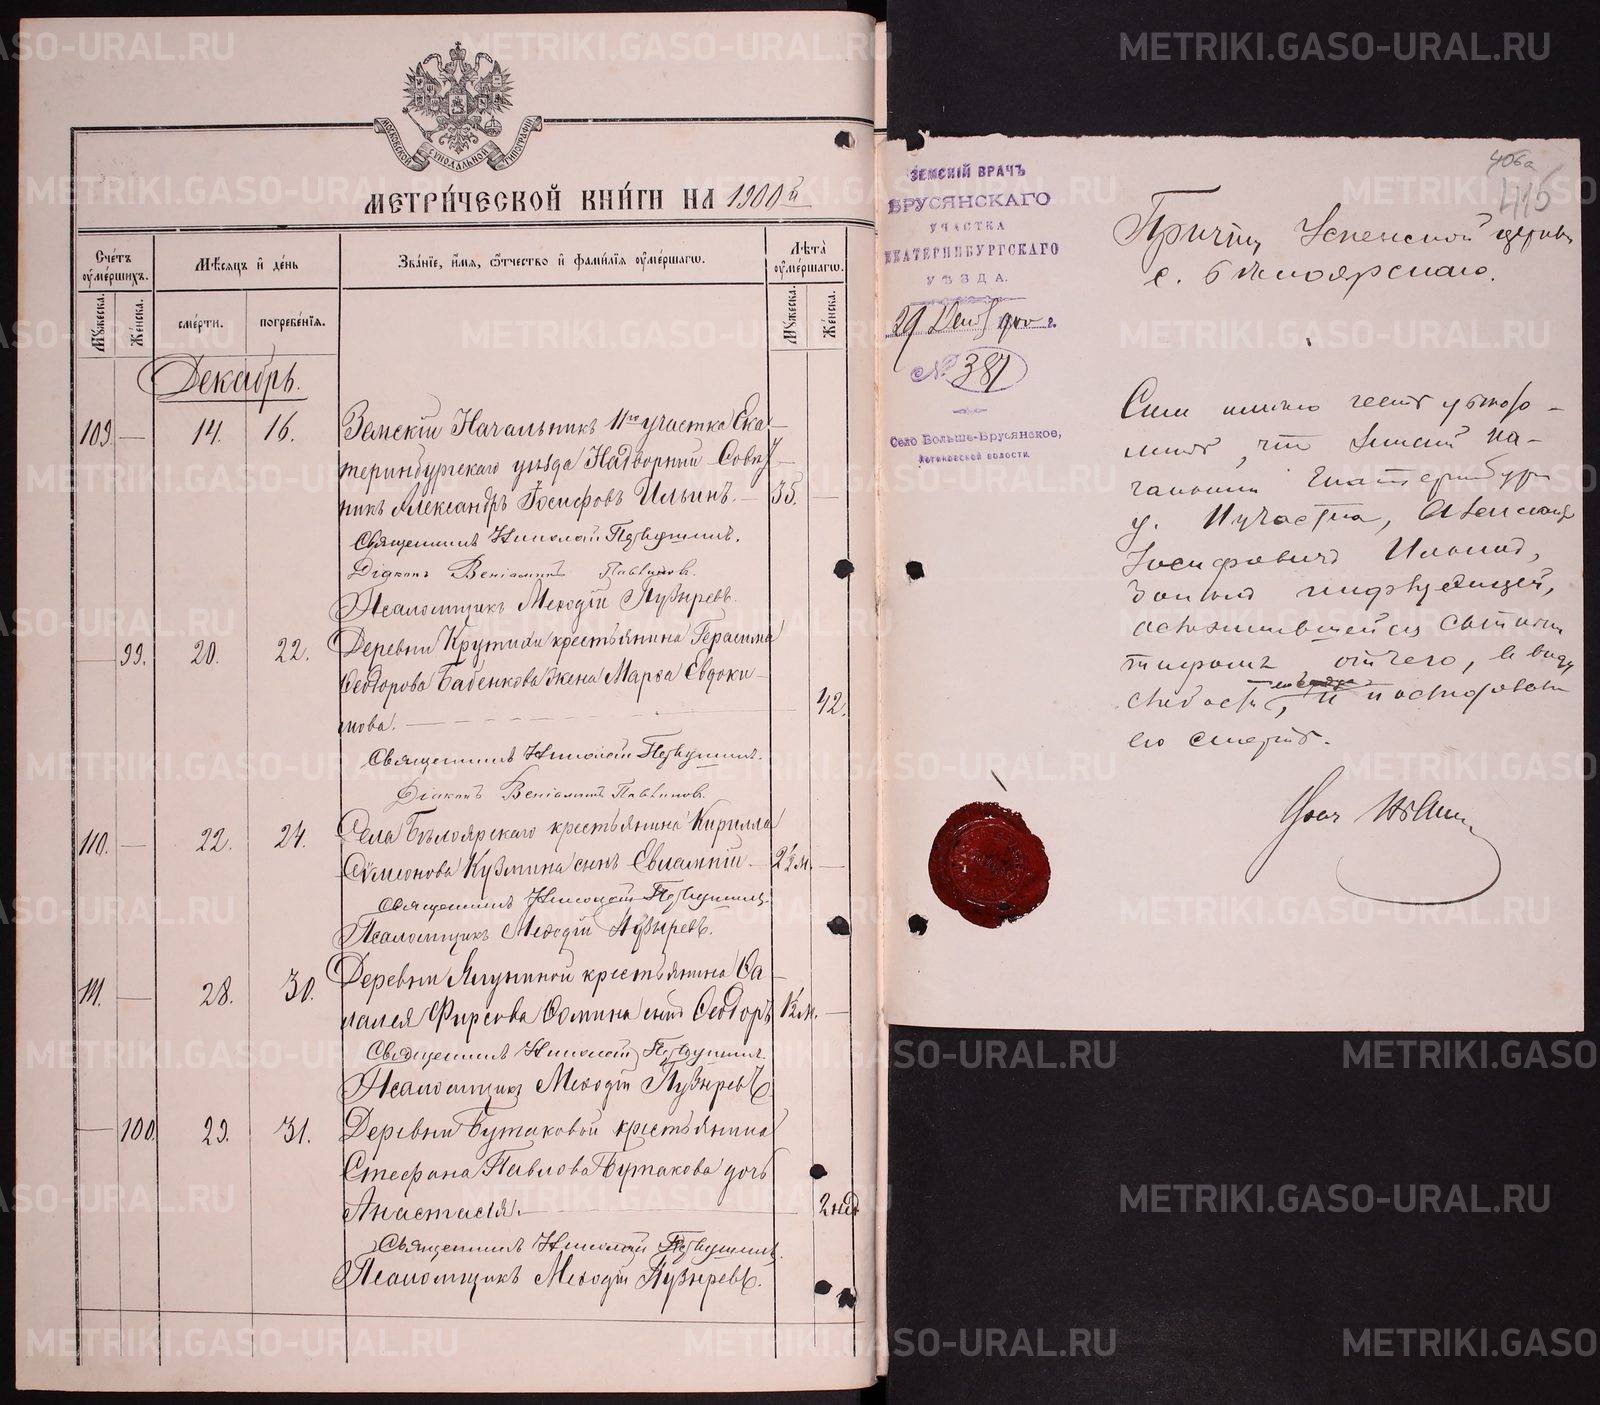 МОСКОВСКОЙ СѴНОДАЛЬНОЙ ТИПОГРАФІИ
МЕТРИ́ЧЕСКОЙ КНИ́ГИ НА 1900й
Сче́тъ ᲂу҆ме́ршихъ.
Мѣ́сѧцъ и҆ де́нь
Зва́нїе, и҆́мѧ, ѻ҆́тчество и҆ фами́лїѧ ᲂу҆ме́ршагѡ.
Лѣ́та ᲂу҆ме́ршагѡ.
Мꙋ́жеска.
Же́нска.
сме́рти.
погребе́нїѧ.
Мꙋ́жеска.
Же́нска.
Декабрь.
109. — 14. 16. Земскій Начальникъ 11го участка Ека-
теринбургскаго уѣзда Надворный Совѣт-
никъ Александръ Іосифовъ Ильинъ. — 35. —
Священникъ Николай Первушинъ.
Діаконъ Веніаминъ
Псаломщикъ Меѳодій Пузыревъ.
— 99. 20. 22. Деревни Крутихи крестьянина Герасима
Ѳеодорова Бабенкова жена Марѳа Евдоки-
мова. — 42.
Священникъ Николай Первушинъ.
Діаконъ Веніаминъ
110. — 22. 24. Села Бѣлоярскаго крестьянина Кирилла
Сѵмеонова Кузмина сынъ Евлампій — 2½ м. —
Священникъ Николай Первушинъ.
Псаломщикъ Меѳодій Пузыревъ.
111. — 28. 30. Деревни Ялуниной крестьянина Ѳа-
лалея Фирсова Ѳомина сынъ Ѳеодоръ 1½ м. —
Священникъ Николай Первушинъ.
Псаломщикъ Меѳодій Пузыревъ.
— 100. 29. 31. Деревни Бутаковой крестьянина
Стефана Павлова Бутакова дочь
Анастасія. — 2 нед.
Священникъ Николай Первушинъ.
Псаломщикъ Меѳодій Пузыревъ.
406а
415
ЗЕМСКІЙ ВРАЧЪ
БРУСЯНСКАГО
УЧАСТКА
ЕКАТЕРИНБУРГСКАГО
УѢЗДА.
29 Декаб 1900 г.
№ 381
Село Больше-Брусянское,
Логиновской волости.
Причту Успенской церкви
с. Бѣлоярскаго.
Симъ имѣю честь увѣдо-
мить, что Земскій На-
чальникъ Екатеринбург
у. 11 участка, Александръ
Іосифовичъ Ильинъ,
болѣлъ инфлуэнцей,
осложнившейся
тифомъ, отчего, въ виду
слабости, и послѣдовала
его смерть.
Врач
METRIKI.GASO-URAL.RU